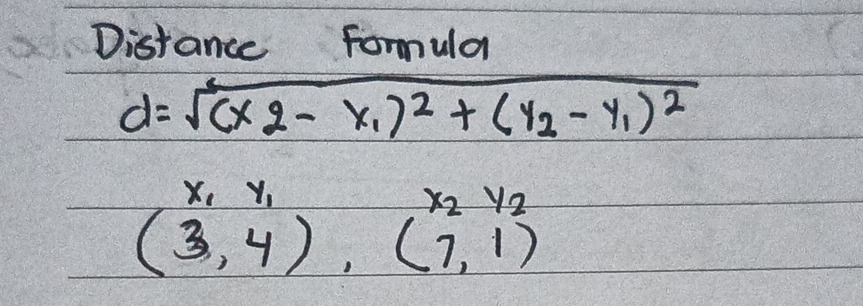 Distance Formula
d=√(x2- x₁)² + (y₂ - y₁)²
x₁ y₁ x₂ y₂
(3,4), (7,1)